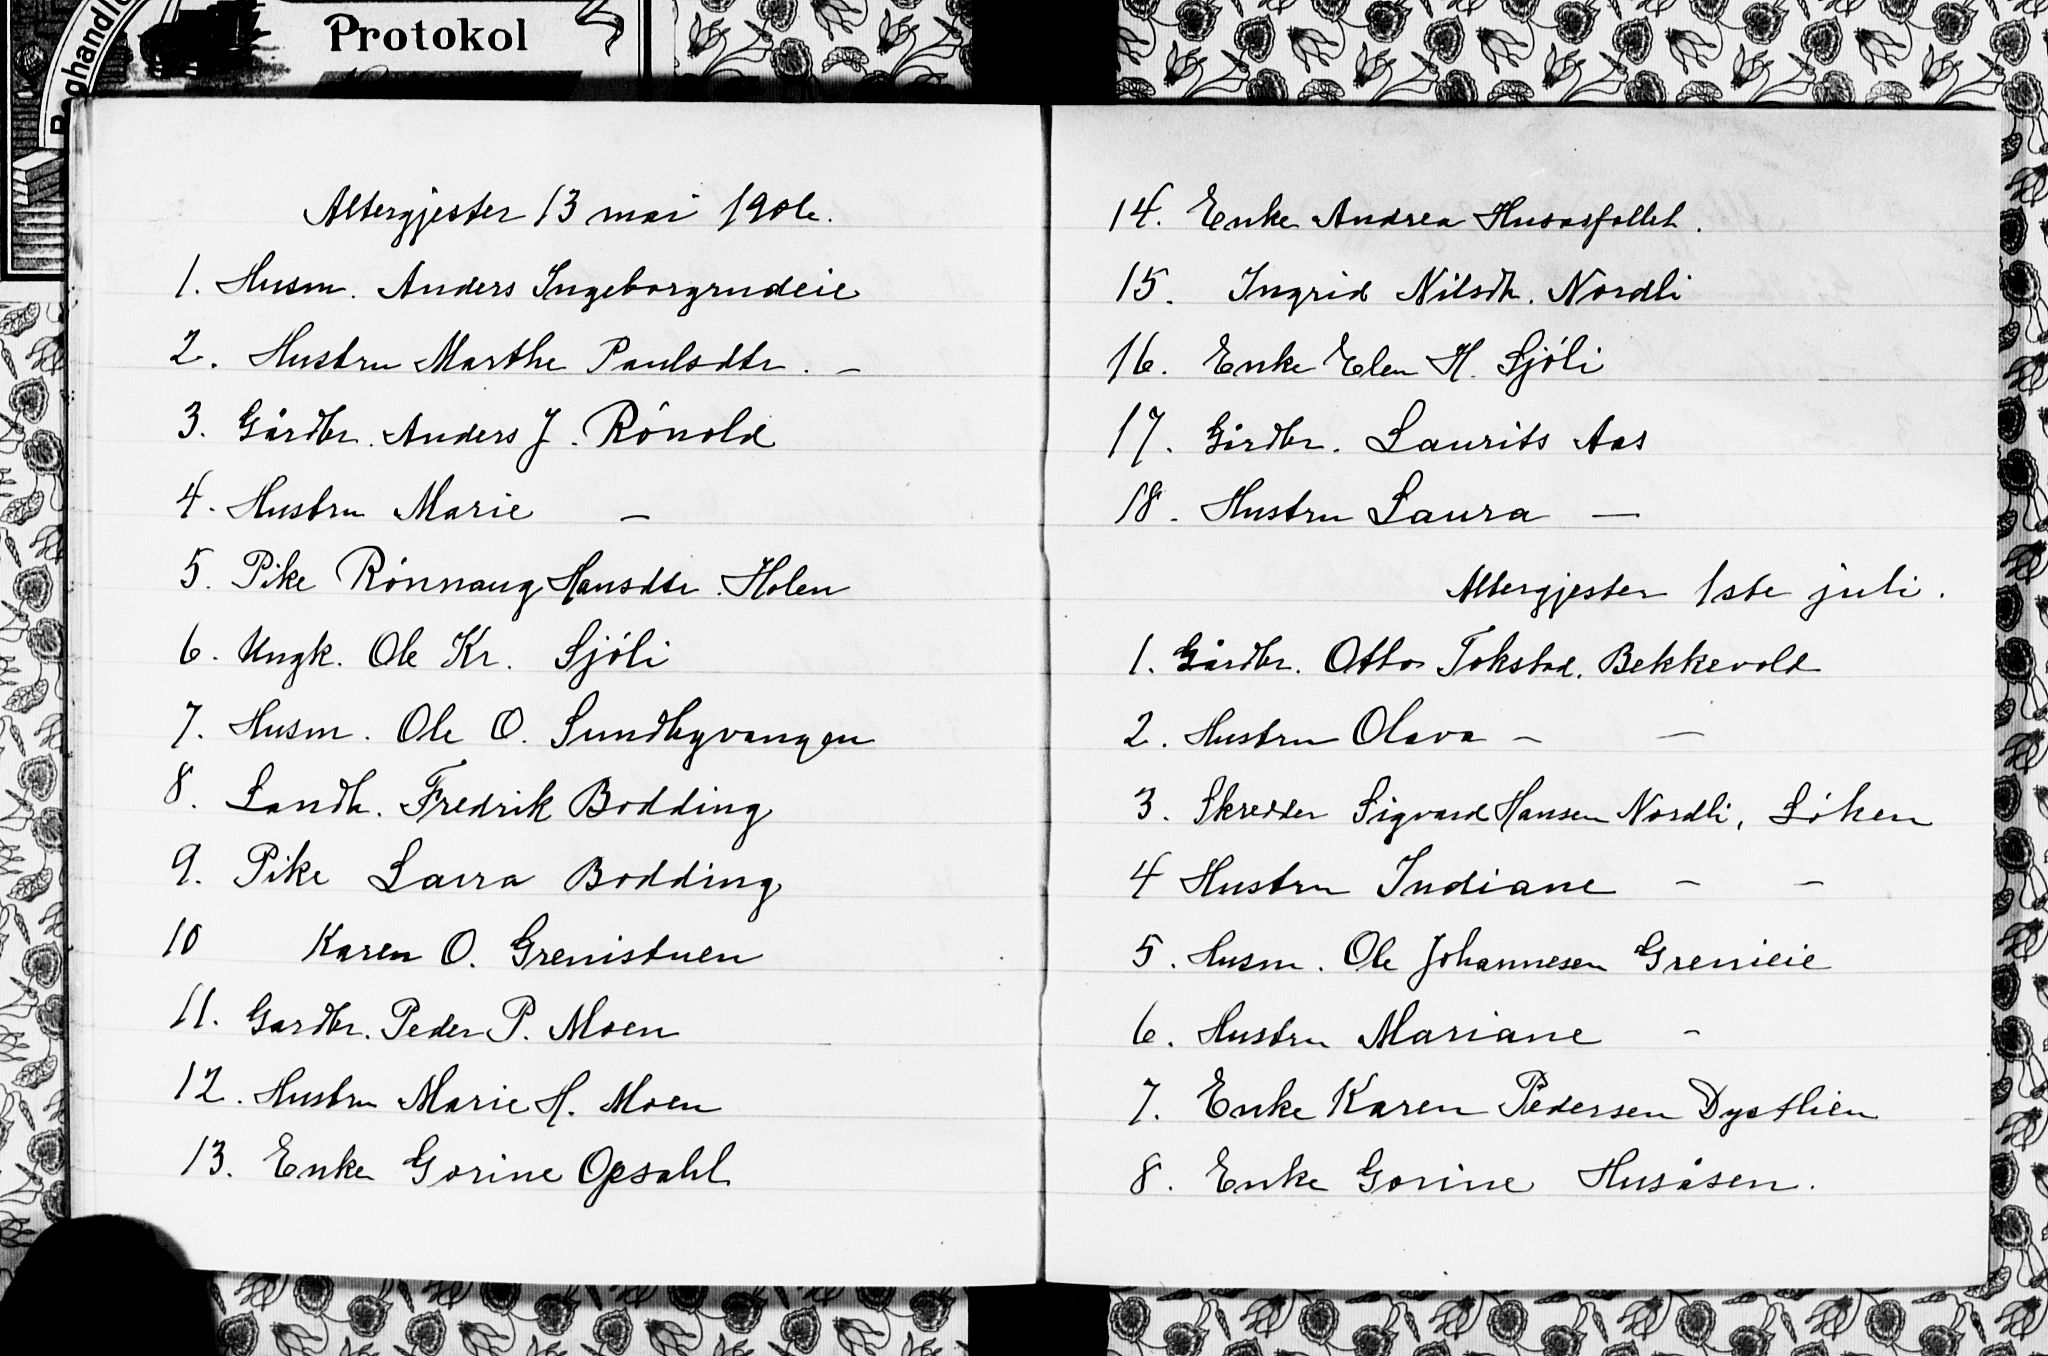 Boghandle
Protokol
Altergjester 13 mai 1906.
1. Husm. Anders Ingeborgrudeie
2. Hustru Marthe Paulsdtr. –
3. Gårdbr. Anders J. Rónold
4. Hustru Marie –
5. Pike Rónnaug Hansdtr. Holen
6. Ungk. Ole Kr. Sjóli
7. Husm. Ole O. Sundbyvangen
8. Landh. Fredrik Bodding
9. Pike Laura Bodding
10 Karen O. Grenistuen
11. Gardbr. Peder P. Moen
12. Hustru Marie H. Moen
13. Enke Gorine Opsahl
14. Enke Andrea Husosfallet.
15. Ingrid Nilsdtr. Nordli
16. Enke Elen H. Sjóli
17. Gårdbr. Laurits Aas
18. Hustru Laura –
Altergjester 1ste juli.
1. Gårdbr. Otto Tokstad. Bekkevold
2. Hustru Olava – –
3. Skredder Sigvard Hansen Nordli, Lóken
4 Hustru Indiane – –
5. Husm. Ole Johannesen Grenieie
6. Hustru Mariane –
7. Enke Karen Pedersen Dystlien
8. Enke Gorine Husåsen.